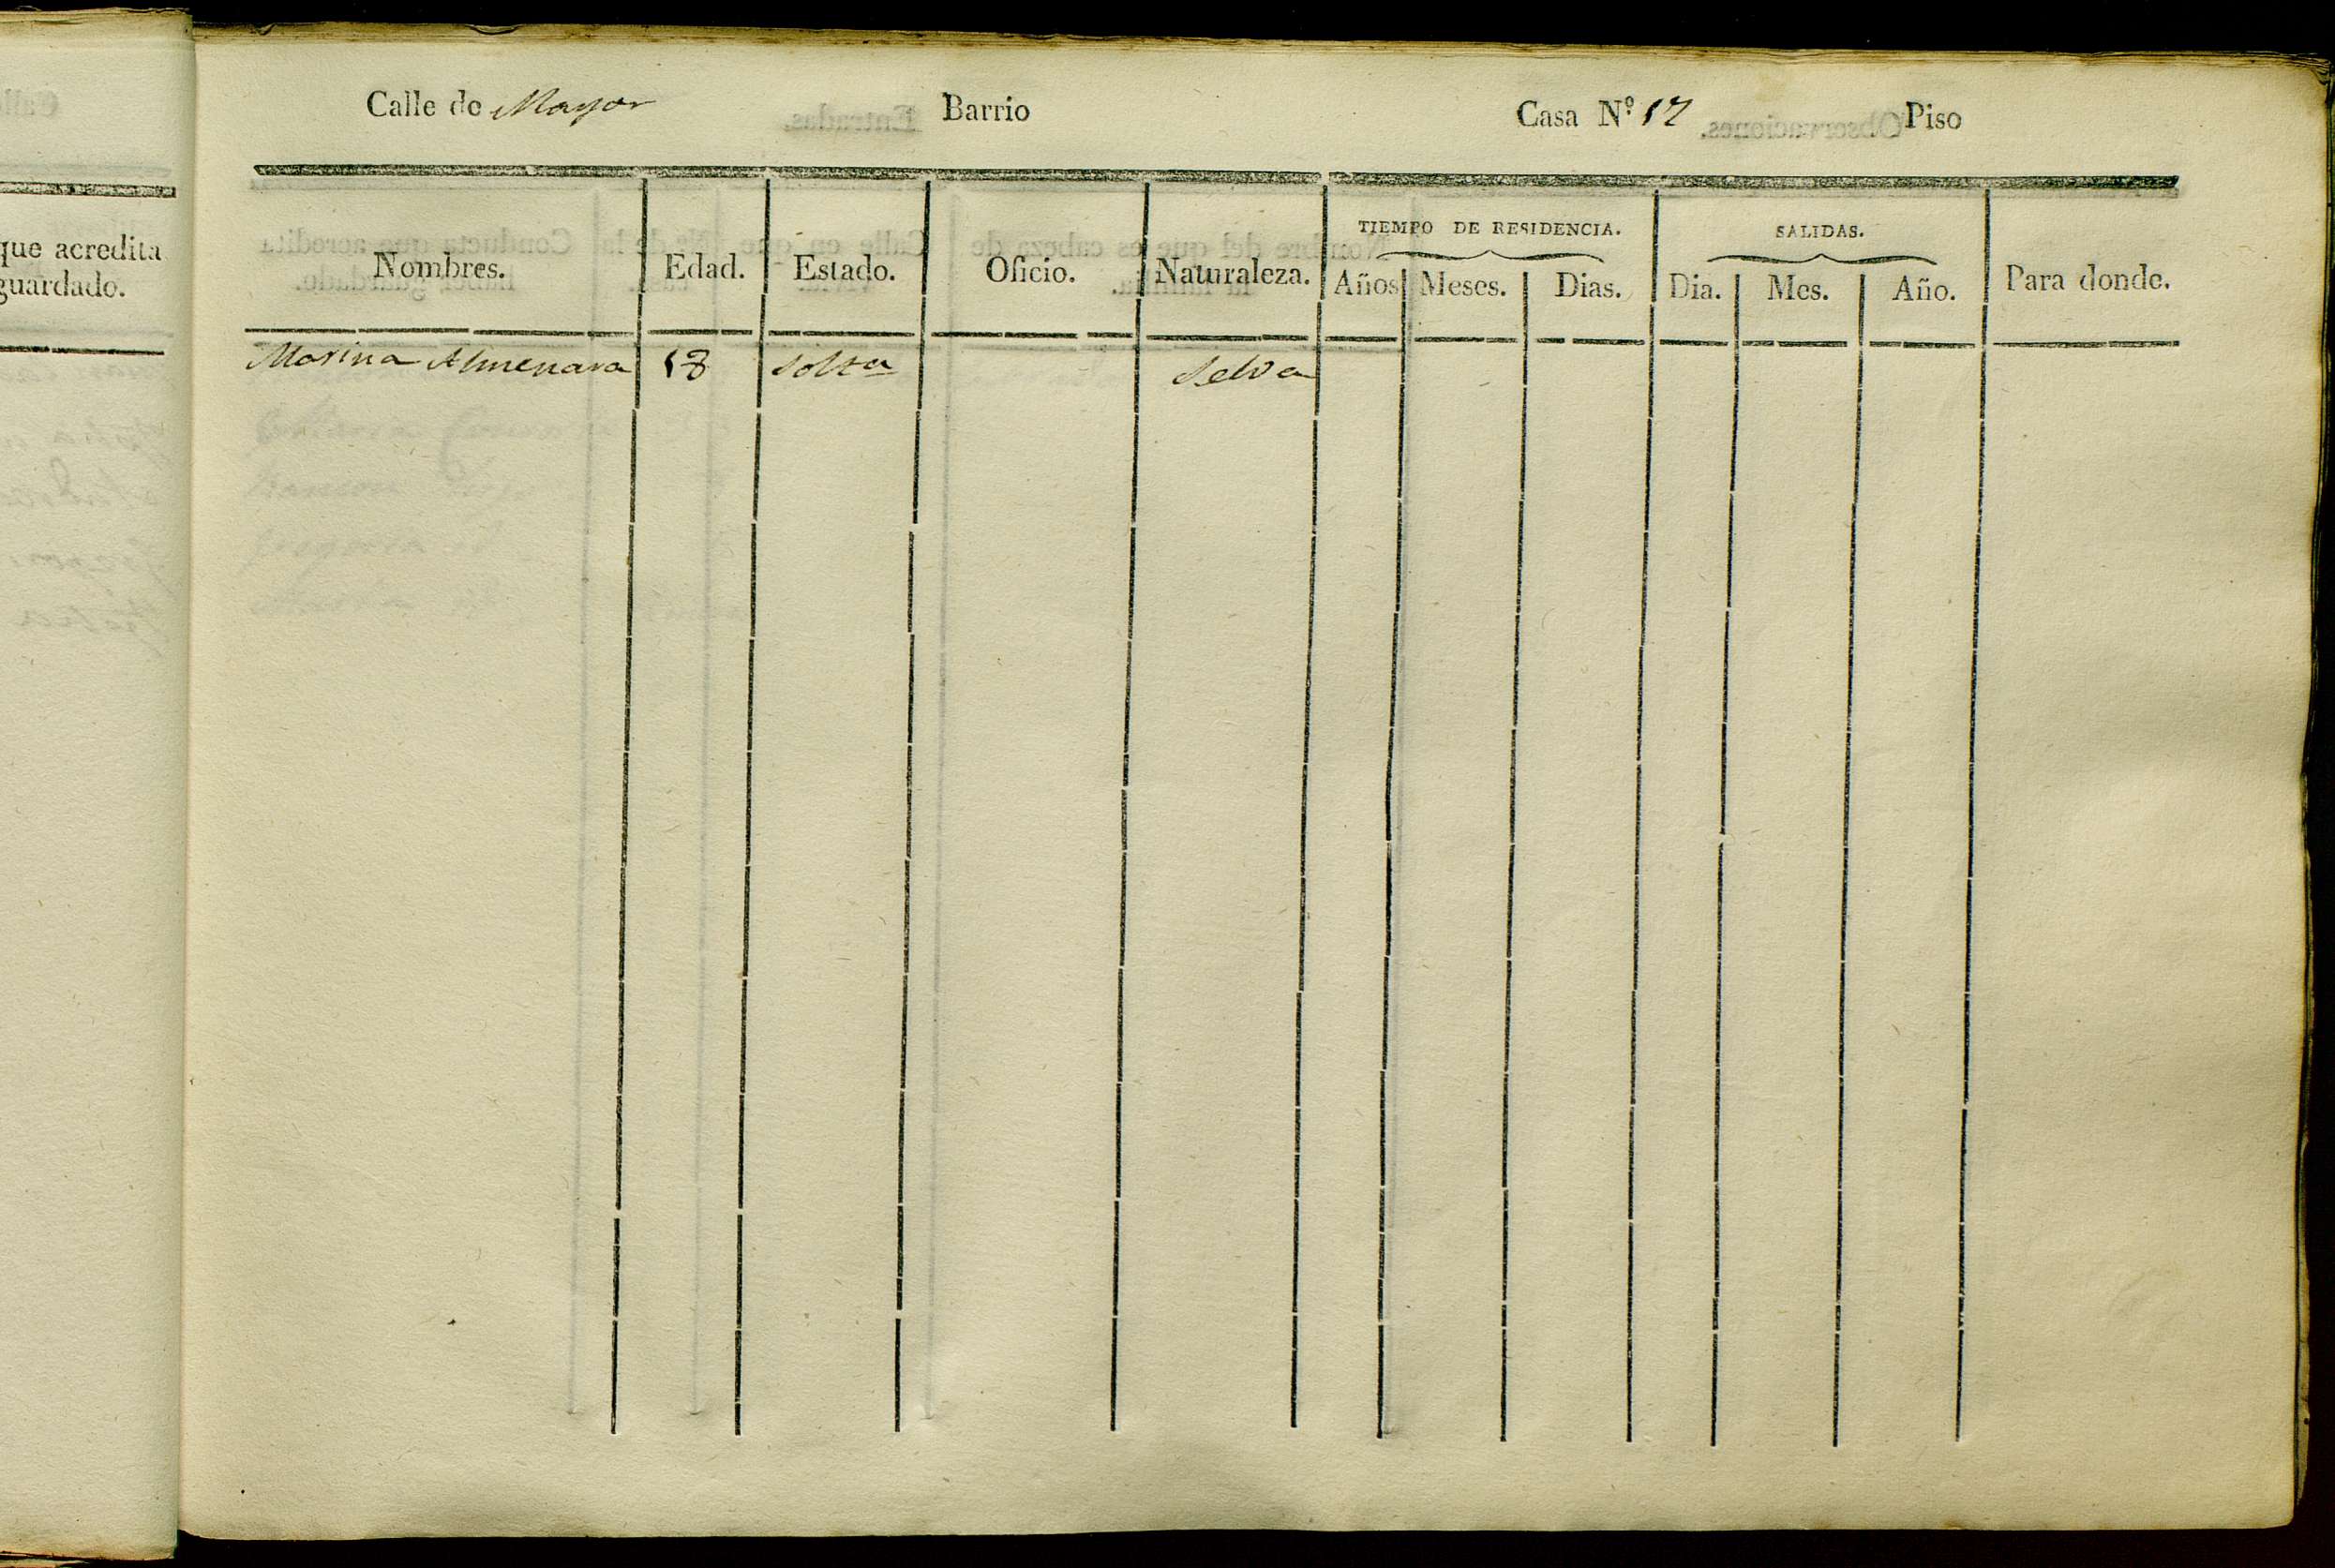 Calle de Mayor Barrio Casa N.º 17 Piso
que acredita
guardado.
TIEMPO DE RESIDENCIA. SALIDAS.
Nombres. Edad. Estado. Oficio. Naturaleza. Años Meses. Dias. Dia. Mes. Año. Para donde.
Marina Almenara 18 Solta Selva